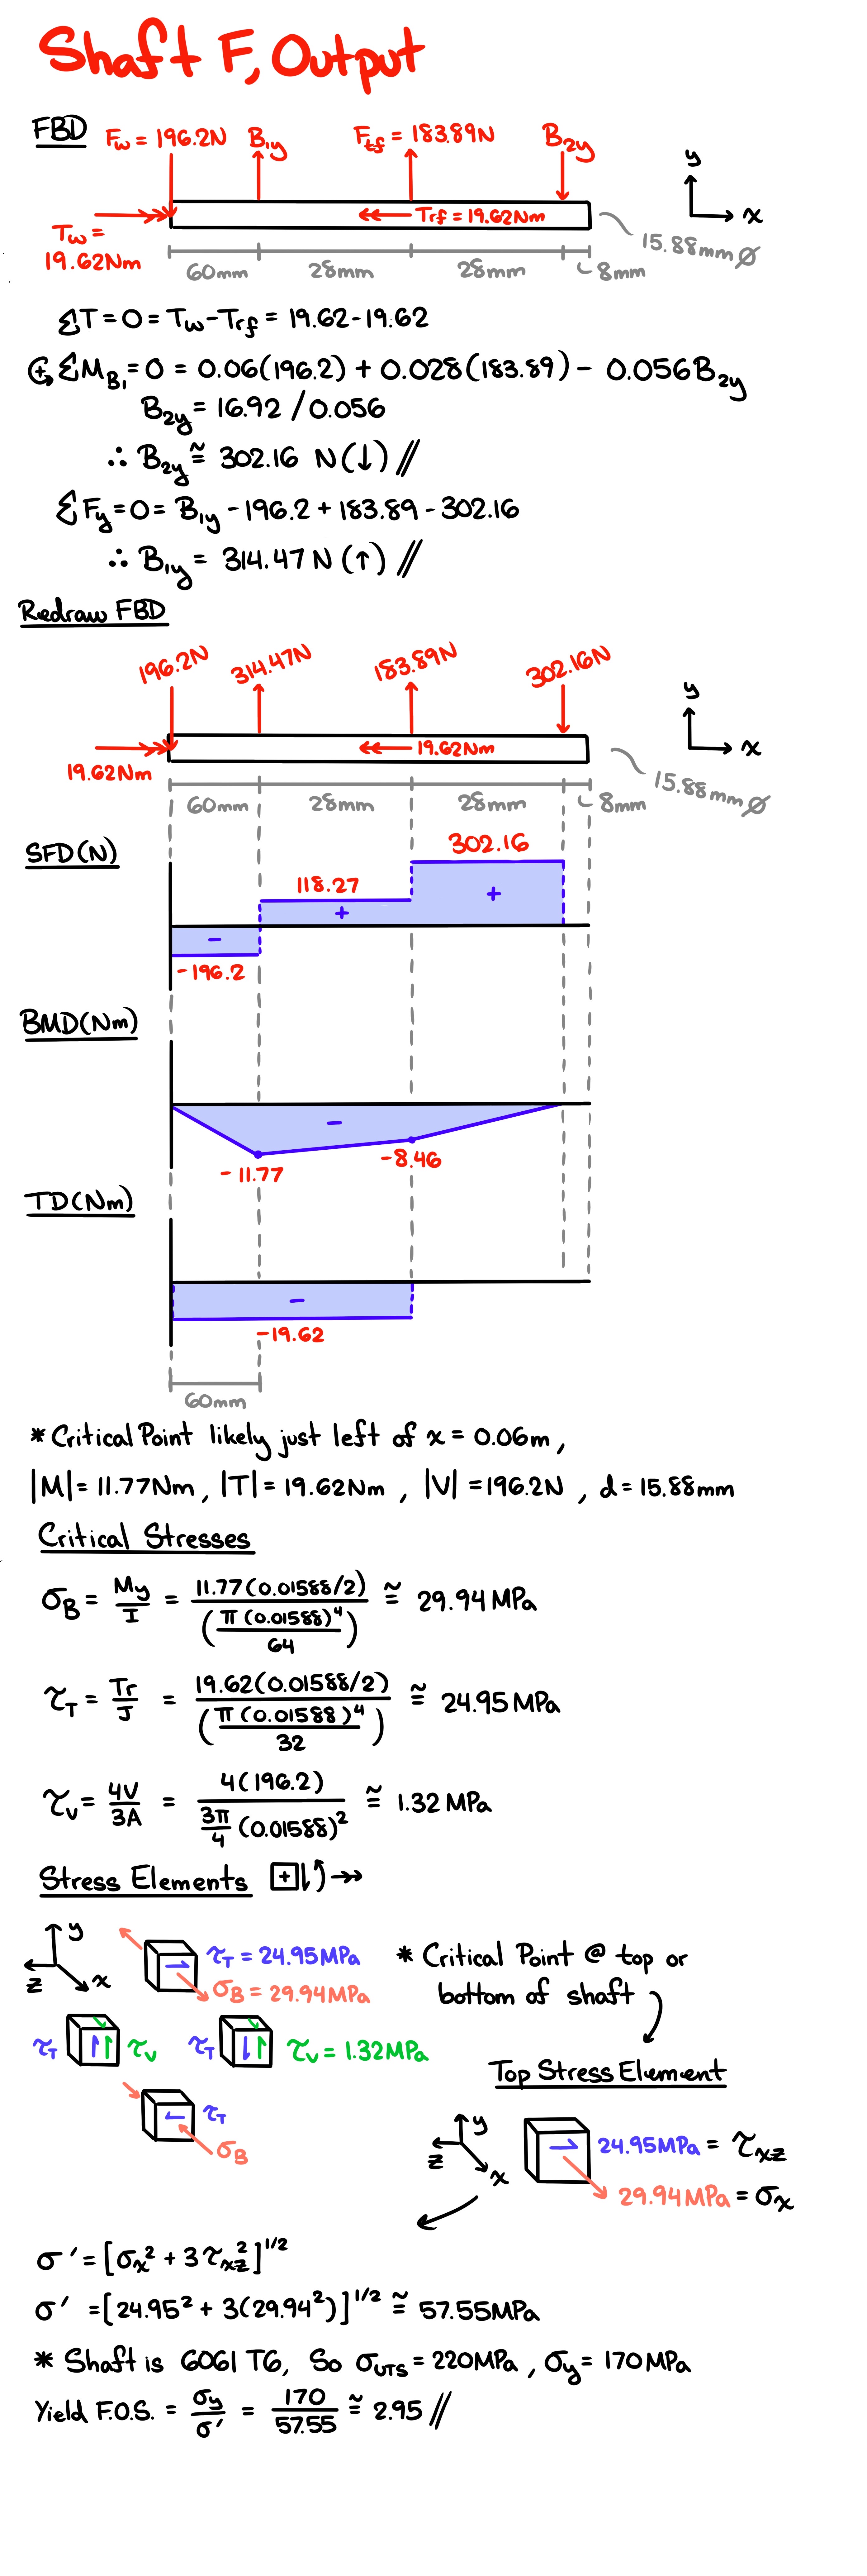 Shaft F, Output
FBD
F_w = 196.2N B_1y F_tf = 183.89N B_2y
y
x
T_w = 19.62Nm
T_rf = 19.62Nm
15.88mm Ø
60mm 28mm 28mm 8mm
ΣT = 0 = T_w - T_rf = 19.62 - 19.62
↻+ ΣM_B1 = 0 = 0.06(196.2) + 0.028(183.89) - 0.056B_2y
B_2y = 16.92 / 0.056
∴ B_2y ≅ 302.16 N (↓) //
ΣF_y = 0 = B_1y - 196.2 + 183.89 - 302.16
∴ B_1y = 314.47 N (↑) //
Redraw FBD
196.2N 314.47N 183.89N 302.16N
y
x
19.62Nm
19.62Nm
15.88mm Ø
60mm 28mm 28mm 8mm
SFD(N)
302.16
118.27
+
+
-
-196.2
BMD(Nm)
-
-11.77
-8.46
TD(Nm)
-
-19.62
60mm
* Critical Point likely just left of x = 0.06m,
|M| = 11.77Nm, |T| = 19.62Nm, |V| = 196.2N, d = 15.88mm
Critical Stresses
σ_B = My/I = 11.77(0.01588/2) / (π(0.01588)^4 / 64) ≅ 29.94 MPa
τ_T = Tr/J = 19.62(0.01588/2) / (π(0.01588)^4 / 32) ≅ 24.95 MPa
τ_V = 4V/3A = 4(196.2) / (3π/4 (0.01588)^2) ≅ 1.32 MPa
Stress Elements +
y
z
x
τ_T = 24.95MPa
σ_B = 29.94MPa
τ_T τ_V τ_T τ_V = 1.32MPa
τ_T
σ_B
* Critical Point @ top or
bottom of shaft
Top Stress Element
y
z
x
24.95MPa = τ_xz
29.94MPa = σ_x
σ' = [σ_x^2 + 3τ_xz^2]^1/2
σ' = [24.95^2 + 3(29.94^2)]^1/2 ≅ 57.55MPa
* Shaft is 6061 T6, So σ_UTS = 220MPa, σ_y = 170MPa
Yield F.O.S. = σ_y/σ' = 170/57.55 ≅ 2.95 //